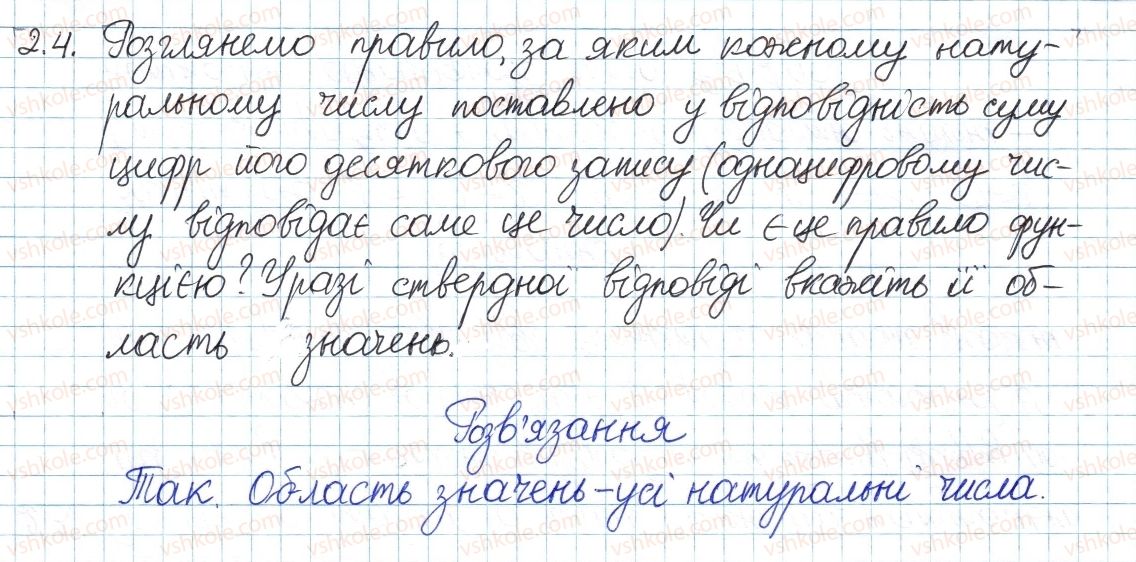 2.4. Розглянемо правило, за яким кожному нату-
ральному числу поставлено у відповідність суму
цифр його десяткового запису (одноцифровому чис-
лу відповідає саме це число). Чи є це правило фун-
кцією? У разі ствердної відповіді вкажіть її об-
ласть значень.
Розв'язання
Так. Область значень - усі натуральні числа.